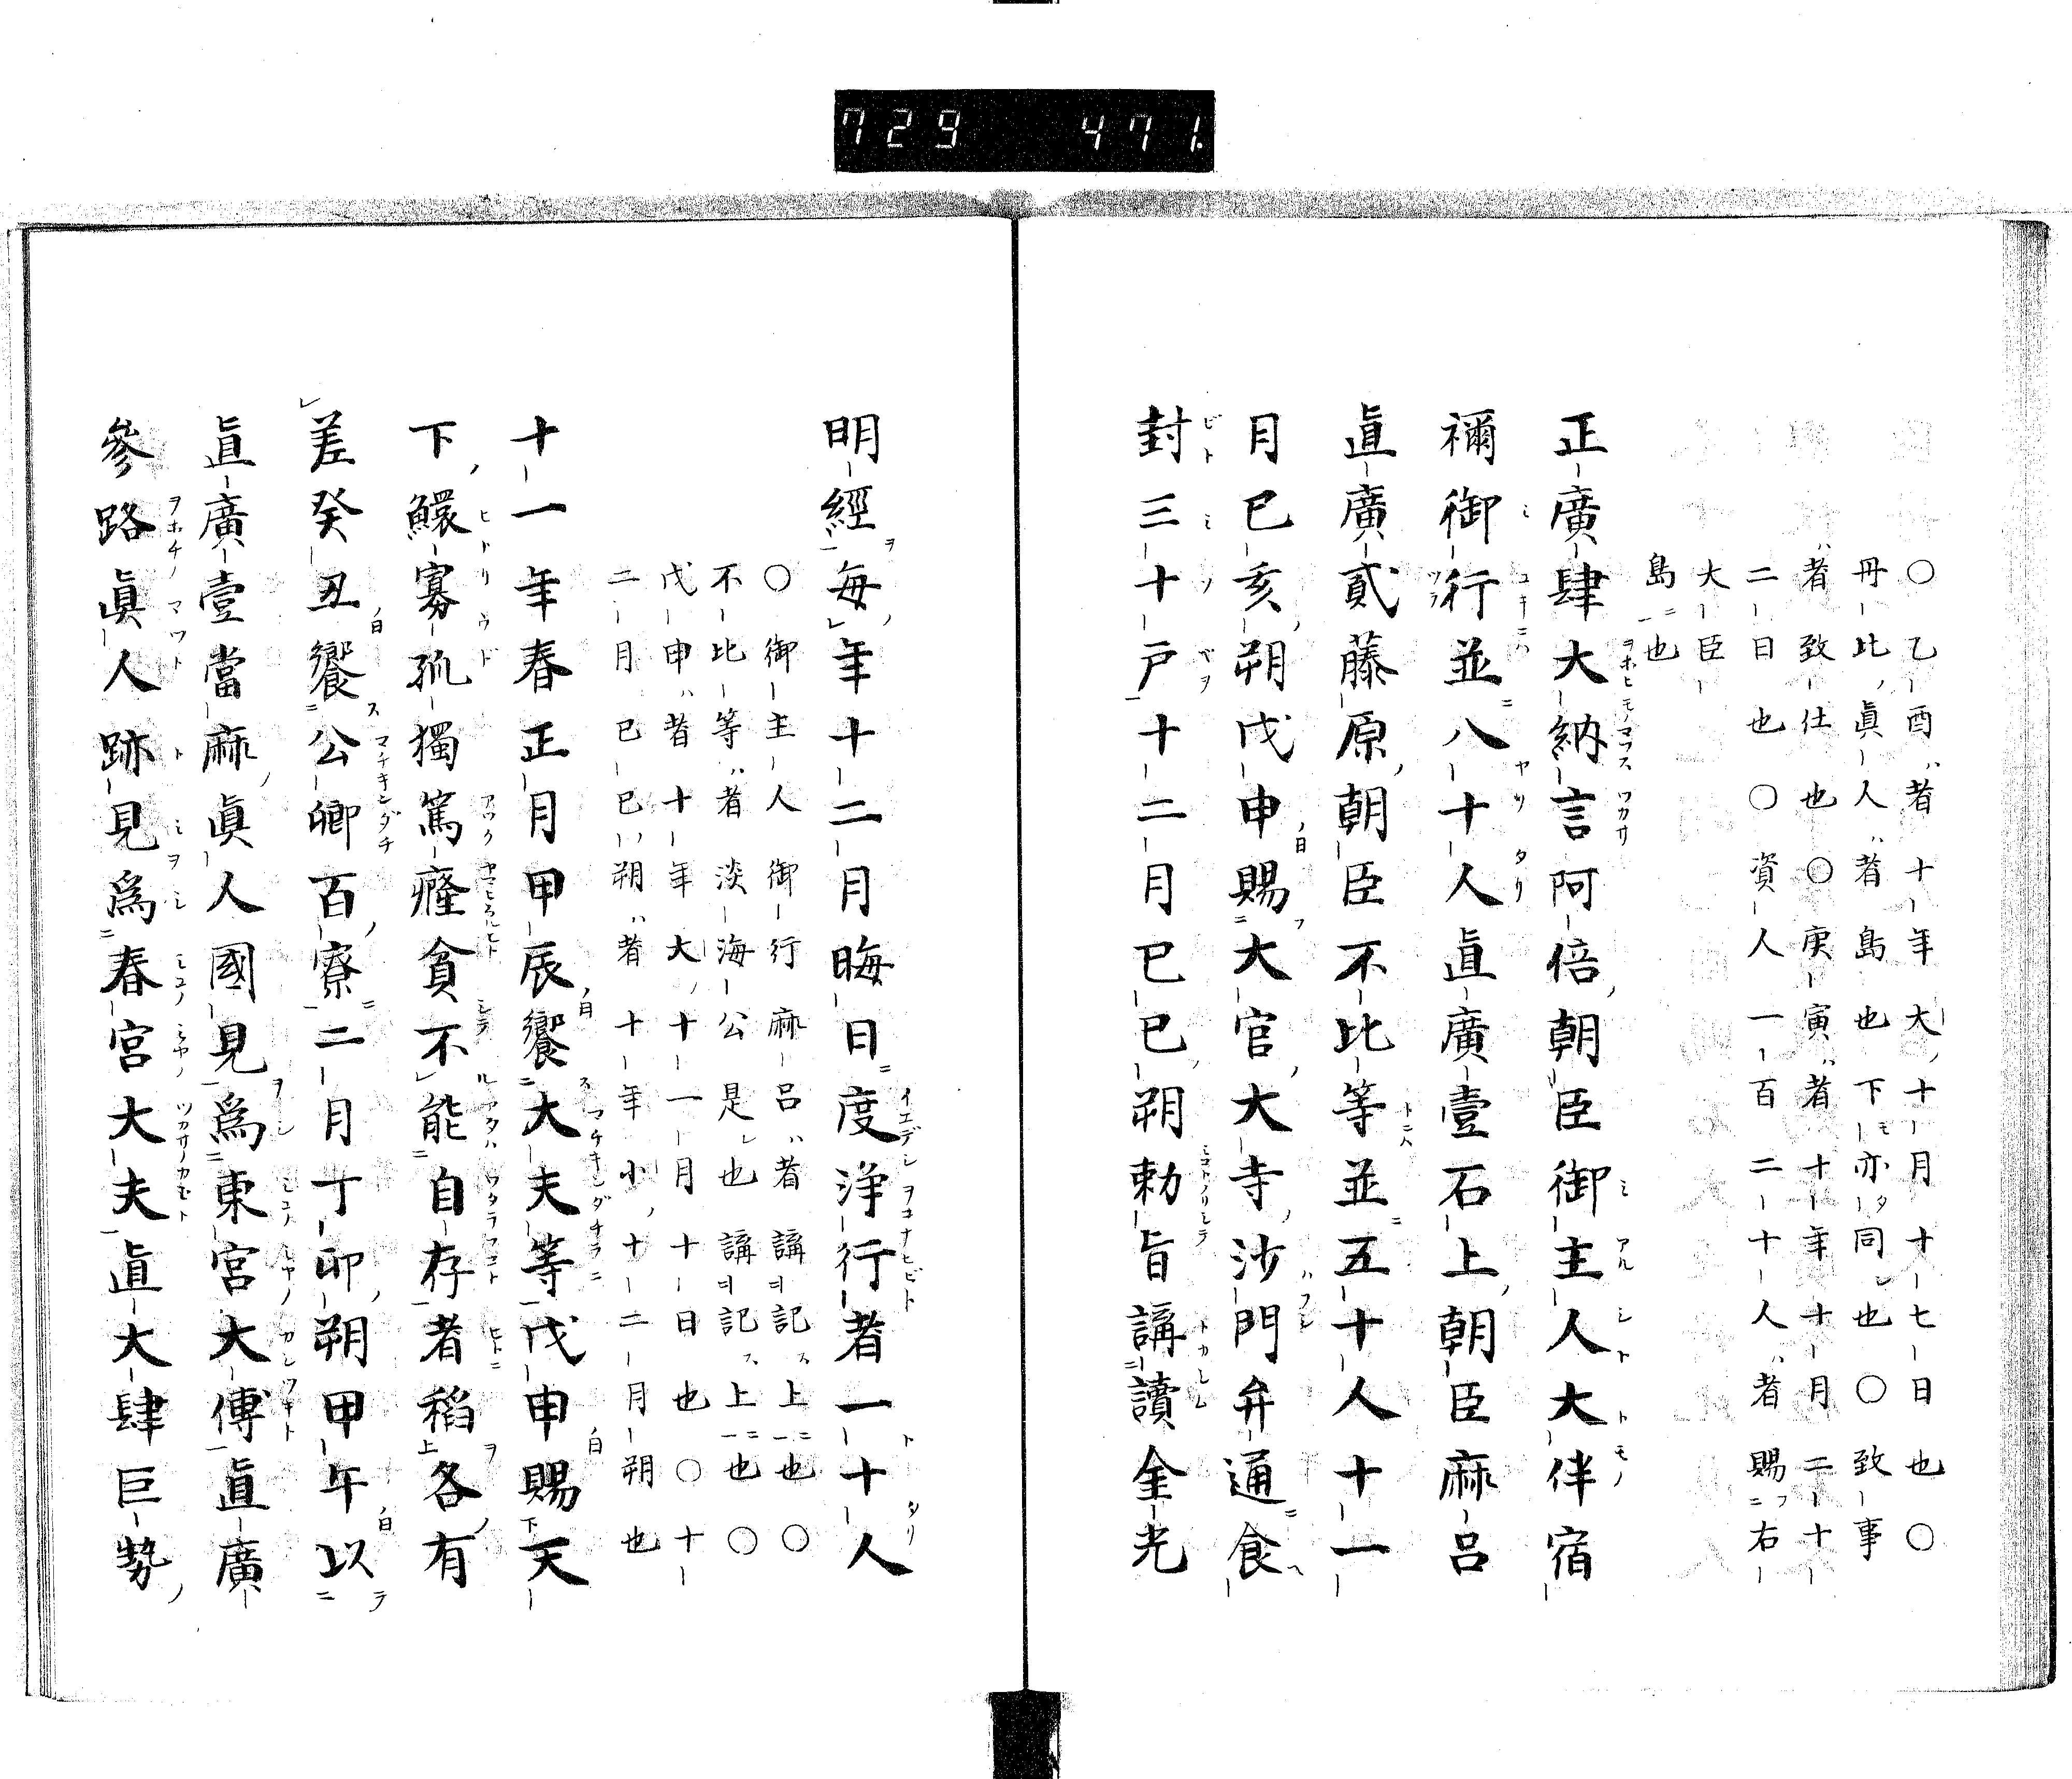 729 471.
〇乙酉者十年大十月十七日也〇
丹比眞人者島也下亦同也〇致事
者致仕也〇庚寅者十年十月二十
二日也〇資人一百二十人者賜右
大臣
島也
正廣肆大納言阿倍朝臣御主人大伴宿
禰御行並八十人直廣壹石上朝臣麻呂
直廣貳藤原朝臣不比等並五十人十一
月己亥朔戊申賜大官大寺沙門弁通食
封三十戸十二月己巳朔勅旨講讀金光
明經毎年十二月晦日度浄行者一十人
〇御主人御行麻呂者講記上也〇
不比等者淡海公是也講記上也〇
戊申者十年大十一月十日也〇十
二月己巳朔者十年小十二月朔也
十一年春正月甲辰饗大夫等戊申賜天
下鰥寡孤獨篤癃貧不能自存者稻各有
差癸丑饗公卿百寮二月丁卯朔甲午以
直廣壹當麻眞人國見爲東宮大傅直廣
參路眞人跡見爲春宮大夫直大肆巨勢